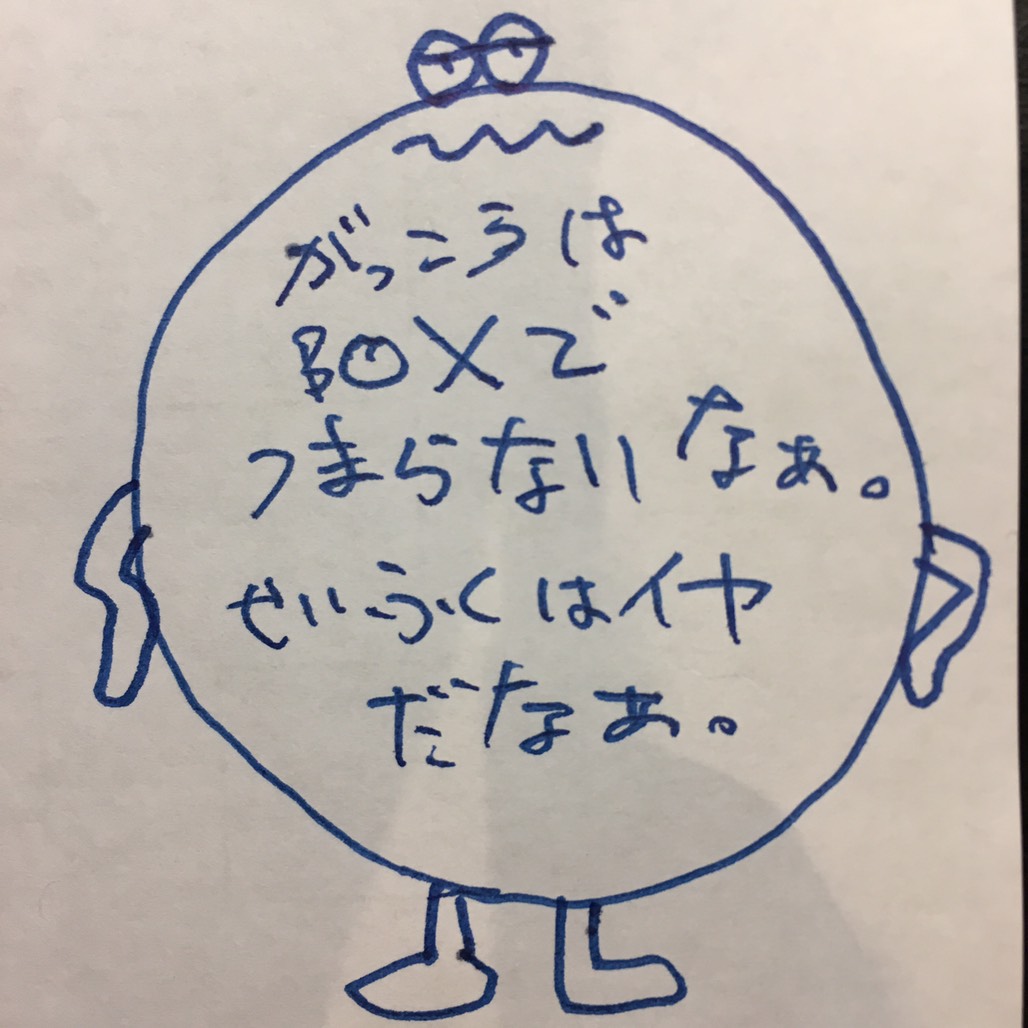 がっこうは
BOXで
つまらないなぁ。
せいふくはイヤ
だなぁ。